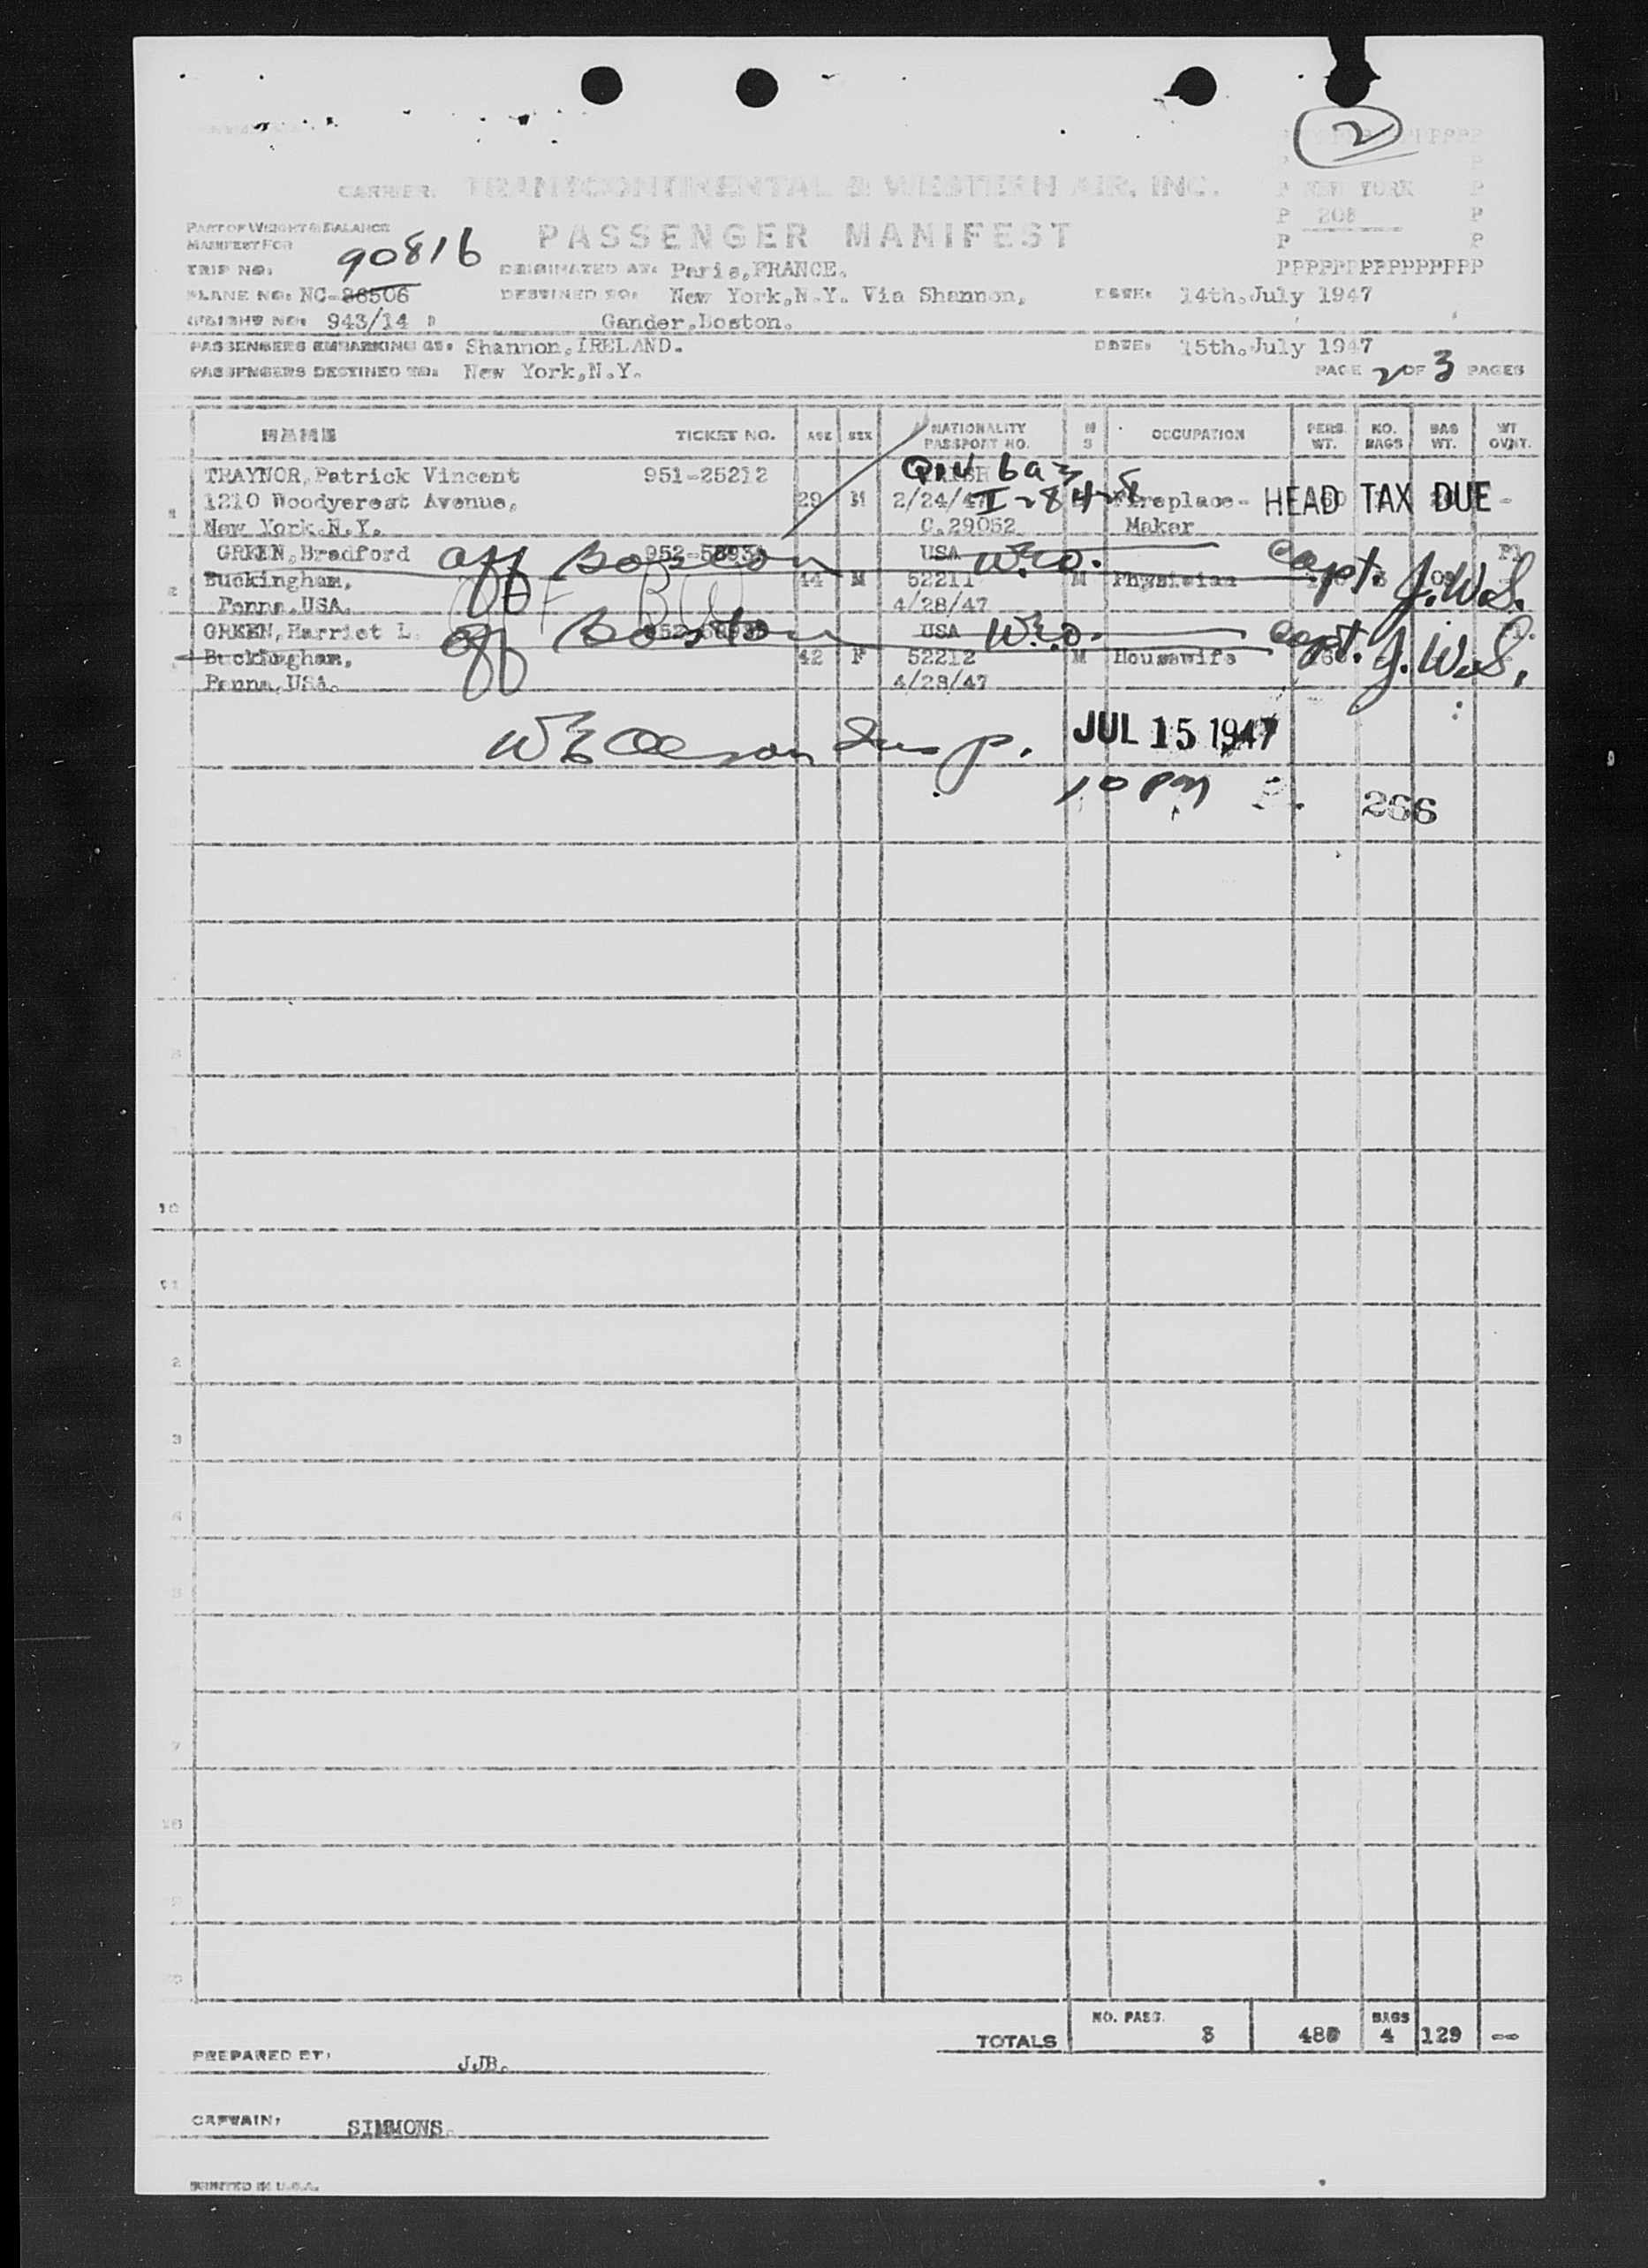 2
CARRIER: TRANSCONTINENTAL & WESTERN AIR, INC.
P NEW YORK P
PART OF WEIGHT & BALANCE
MANIFEST FOR
PASSENGER MANIFEST
P 208 P
P P
TRIP NO: 90816 ORIGINATED AT: Paris,FRANCE. PPPPPPPPPPPPPPP
PLANE NO: NC-86506 DESTINED TO: New York,N.Y. Via Shannon, DATE: 14th.July 1947
FLIGHT NO: 943/14 Gander,Boston.
PASSENGERS EMBARKING AT: Shannon,IRELAND. DATE: 15th.July 1947
PASSENGERS DESTINED TO: New York,N.Y. PAGE 2 OF 3 PAGES
NAME TICKET NO. AGE SEX NATIONALITY PASSPORT NO. M S OCCUPATION PERS. WT. NO. BAGS BAG WT. WT OVNT.
TRAYNOR,Patrick Vincent 951-25212
1210 Woodycrest Avenue, 29 M 2/24/47 Fireplace- HEAD TAX DUE -
1
New York.N.Y. C.29052 Maker
GREEN,Bradford off Boston USA W.E.O. Capt. J.W.S.
2 Buckingham, 44 M 52211 M Physician
Penna.USA. 4/28/47
GREEN,Harriet L. off Boston USA W.E.O. Capt. J.W.S.
Buckingham, 42 F 52212 M Housewife
Penna,USA. 4/28/47
W E Olson Insp. JUL 15 1947
10 PM 266
10
11
2
3
TOTALS NO. PASS. 3 480 BAGS 4 129 --
PREPARED BY: JJB.
CAPTAIN: SIMMONS.
PRINTED IN U.S.A.